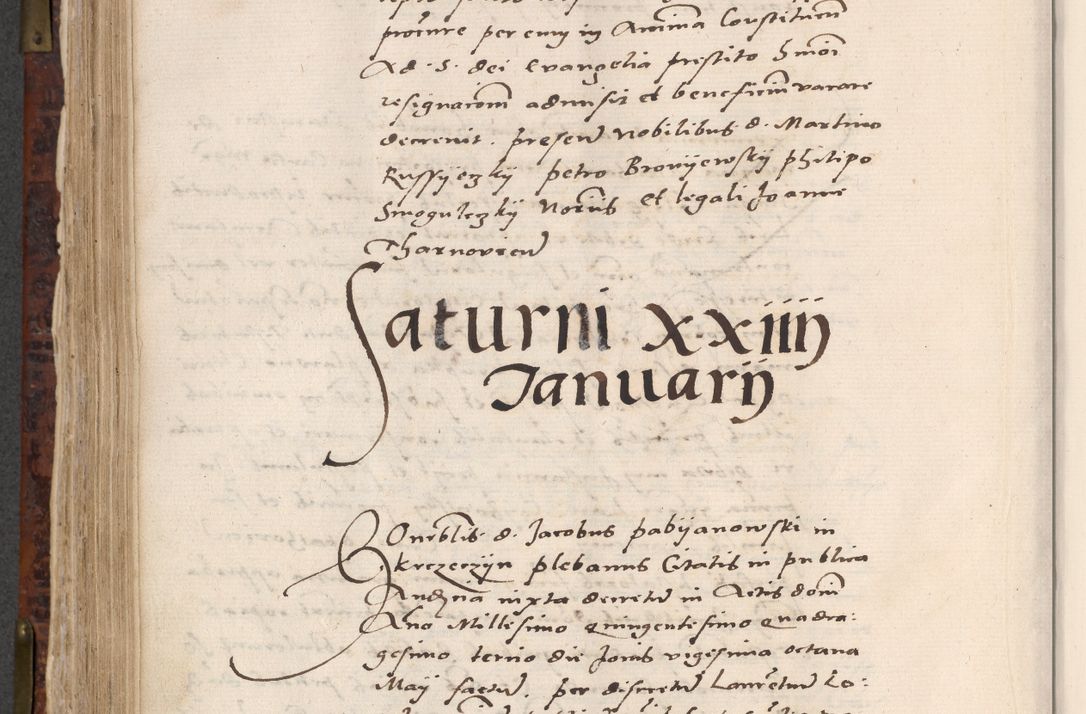 procure per eum in Animam Constitucm
Ad S. dei Evangelia prestito Simoi
resignaciom admisit et beneficium vacare
decrevit. presen Nobilibus d. Martino
Russyeczky petro Bronyewsky philipo
Smoguleczky Noriis et legali Joanne
Tharnovien
Saturni xxiiii
Januarii
Onorblis d. Jacobus pabyanowski in
Skrzeczyn plebanus Citatis in publica
Audncia iuxta decretu in Actis domi
Ano Millesimo quingentesimo quadra:
gesimo tercio die Jovis vigesima octava
Maÿ factu, per discretu Laurentiu Lo: